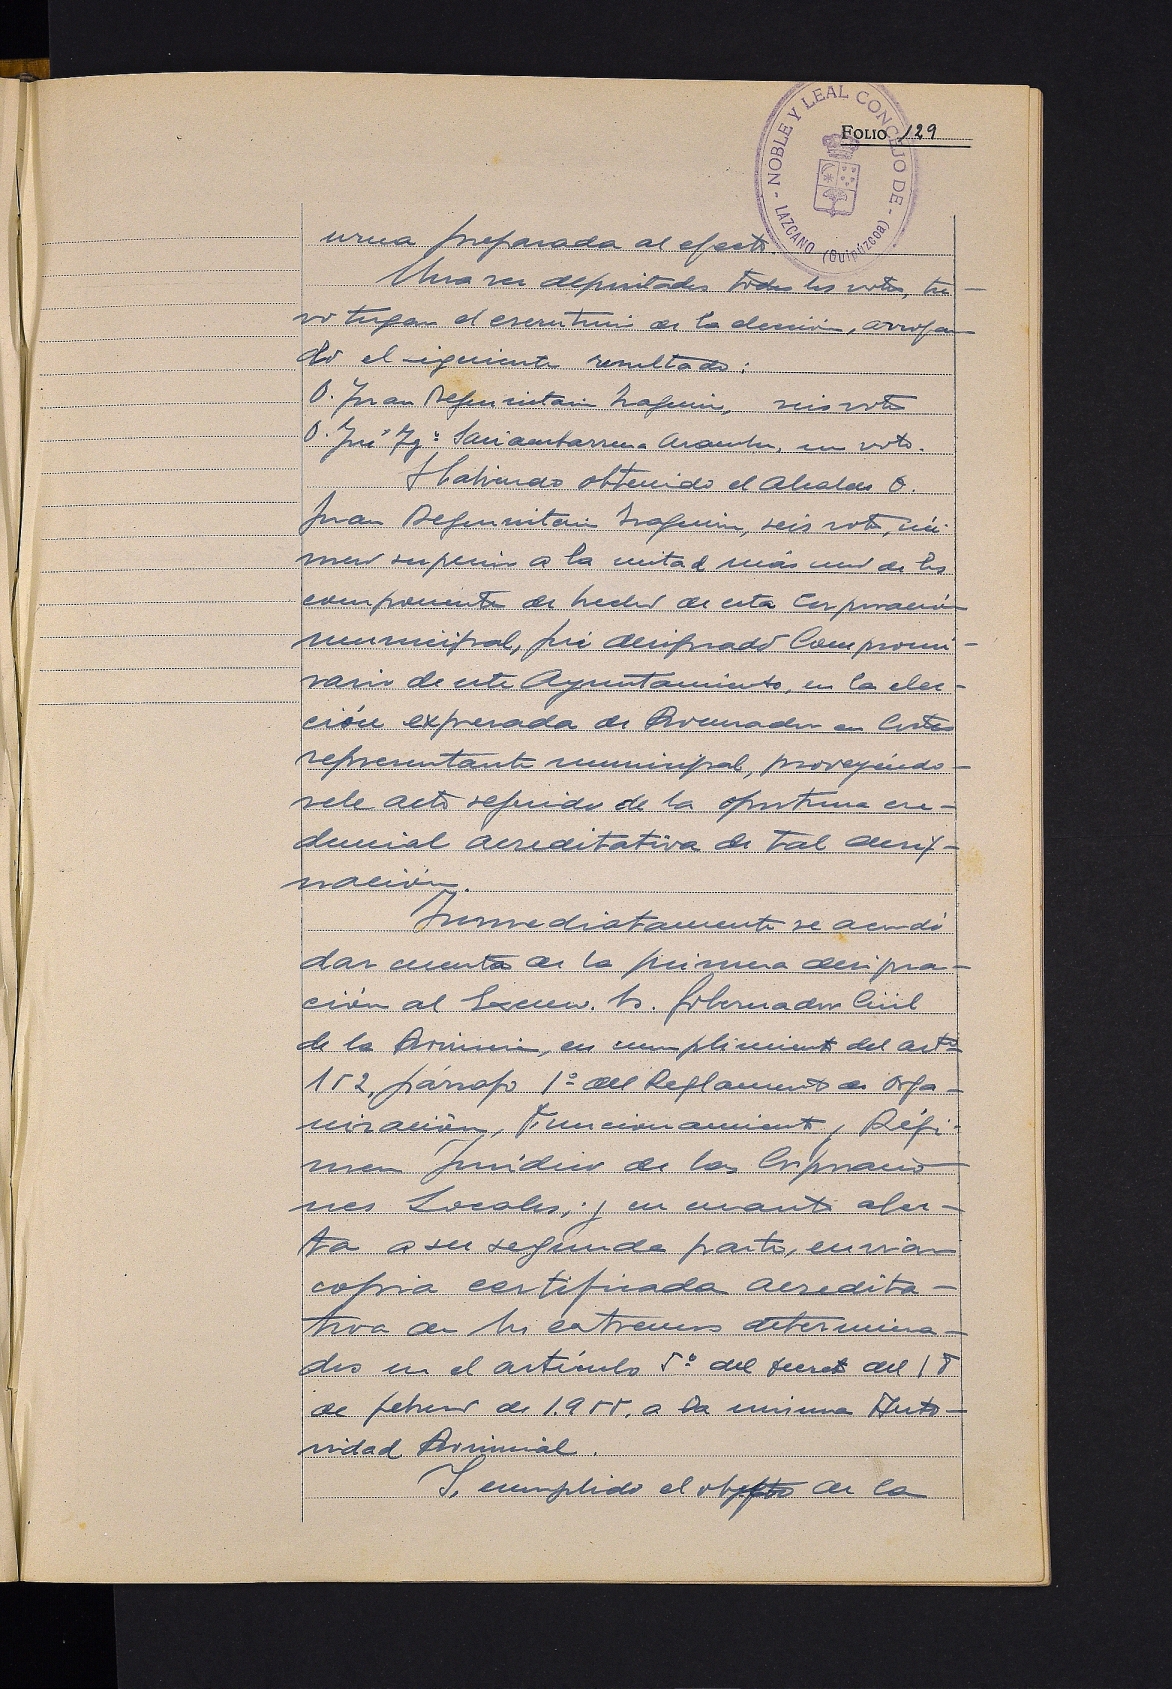 NOBLE Y LEAL CONCEJO DE - LAZCANO (Guipúzcoa)
FOLIO 129
urna preparada al efecto.
Una vez depositados todos los votos, tu-
vo lugar el escrutinio de la elección, arrojan
do el siguiente resultado:
D. Juan seis votos
D. José Igº un voto.
Habiendo obtenido el Alcalde D.
Juan seis votos, nú-
mero superior a la mitad más uno de los
componentes de hecho de esta Corporación
municipal, fué designado Compromi-
sario de este Ayuntamiento, en la elec-
ción expresada de Procurador en Cortes
representante municipal, proveyéndo-
sele acto seguido de la oportuna cre-
dencial acreditativa de tal desig-
nación.
Inmediatamente se acordó
dar cuenta de la primera designa-
ción al Excmo. Sr. Gobernador Civil
de la Provincia, en cumplimiento del artº
152, párrafo 1º del Reglamento de Orga-
nización, Funcionamiento y Régi-
men Jurídico de las Corporacio
nes Locales, y en cuanto afec-
ta a su segunda parte, enviar
copia certificada acredita-
tiva de los extremos determina-
dos en el artículo 5º del Decreto del 18
de febrero de 1.955, a la misma Auto-
ridad Provincial.
Y, cumplido el objeto de la